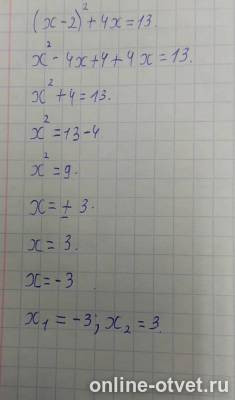 (x-2)² + 4x = 13.
x² - 4x + 4 + 4x = 13.
x² + 4 = 13.
x² = 13 - 4
x² = 9.
x = ± 3.
x = 3.
x = -3
x₁ = -3; x₂ = 3.
online-otvet.ru